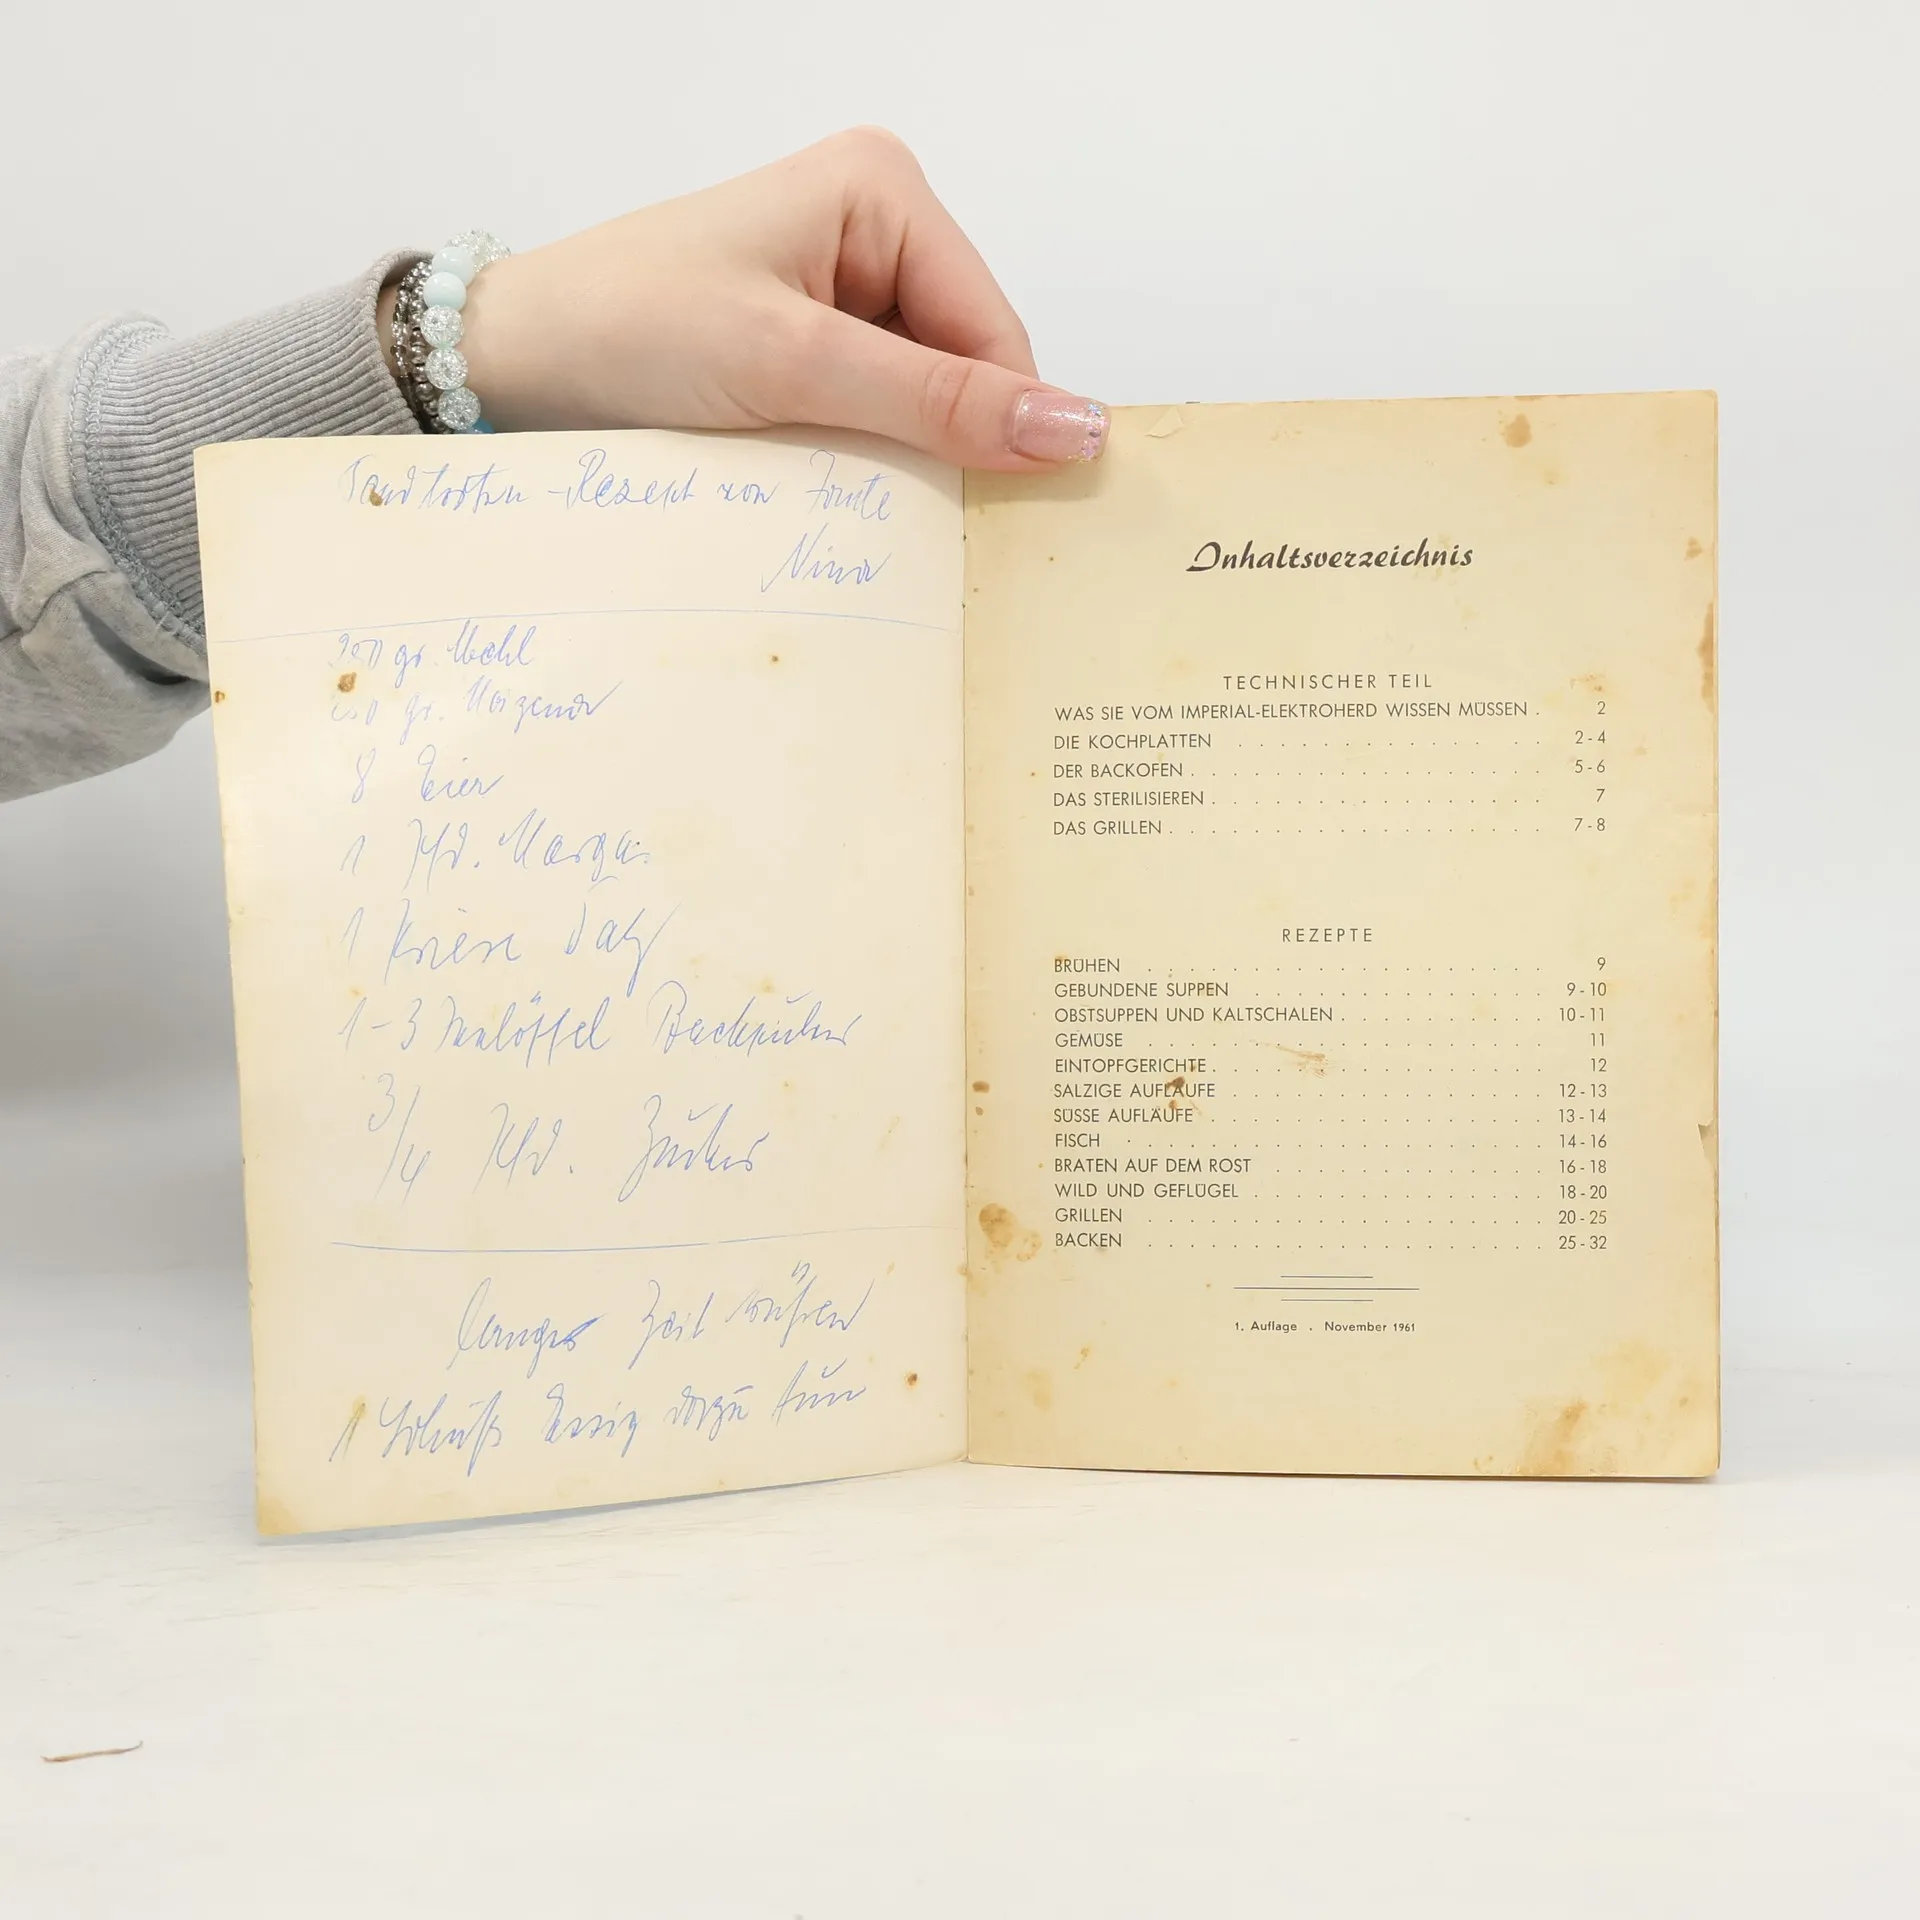 Sandtorten-Rezept von Tante
Nina
gr. Mehl
gr. Maizena
8 Eier
1 Pfd. Marga.
1 Priese Salz
1-3 Teelöffel Backpulver
3/4 Pfd. Zucker
Zeit rühren
1 Schuß Essig dazu tun
Inhaltsverzeichnis
TECHNISCHER TEIL
WAS SIE VOM IMPERIAL-ELEKTROHERD WISSEN MÜSSEN . 2
DIE KOCHPLATTEN . . . . . . . . . . . . 2-4
DER BACKOFEN . . . . . . . . . . . . . . . 5-6
DAS STERILISIEREN . . . . . . . . . . . . . . 7
DAS GRILLEN . . . . . . . . . . . . . . . . 7-8
REZEPTE
BRÜHEN . . . . . . . . . . . . . . . . . 9
GEBUNDENE SUPPEN . . . . . . . . . . . . . 9-10
OBSTSUPPEN UND KALTSCHALEN . . . . . . . . . 10-11
GEMÜSE . . . . . . . . . . . . . . . . . 11
EINTOPFGERICHTE . . . . . . . . . . . . . . 12
SALZIGE AUFLÄUFE . . . . . . . . . . . . . . 12-13
SÜSSE AUFLÄUFE . . . . . . . . . . . . . . . 13-14
FISCH . . . . . . . . . . . . . . . . . . 14-16
BRATEN AUF DEM ROST . . . . . . . . . . . . 16-18
WILD UND GEFLÜGEL . . . . . . . . . . . . . 18-20
GRILLEN . . . . . . . . . . . . . . . . . 20-25
BACKEN . . . . . . . . . . . . . . . . . 25-32
1. Auflage . November 1961